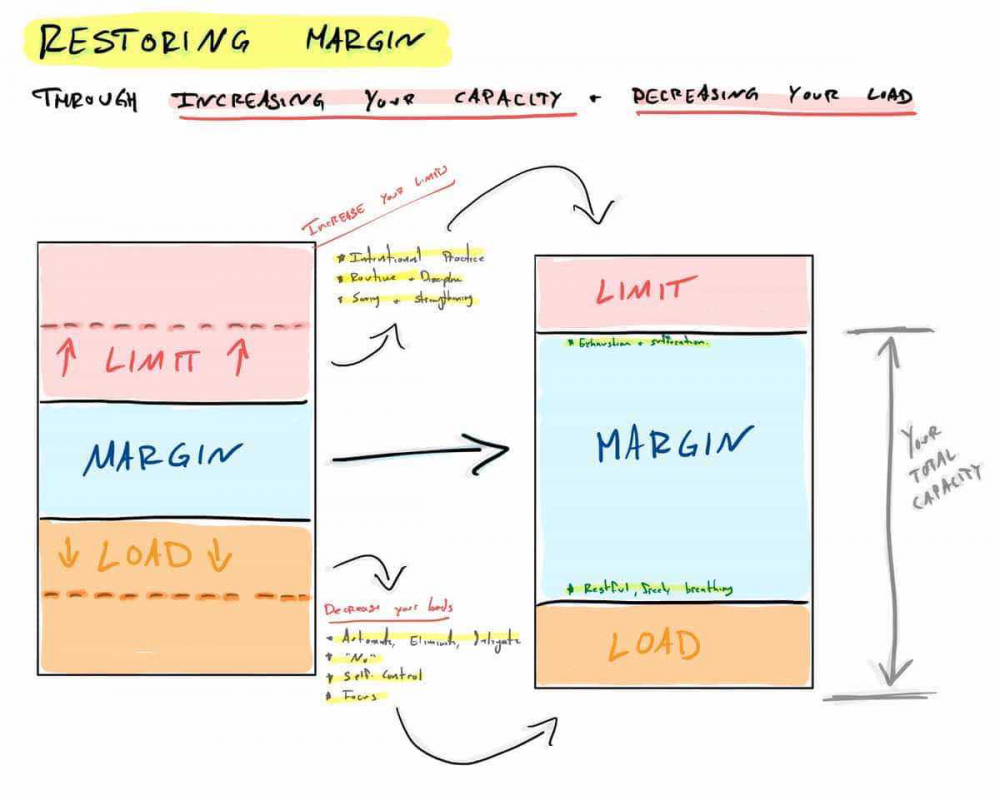 RESTORING MARGIN
THROUGH INCREASING YOUR CAPACITY + DECREASING YOUR LOAD
INCREASE YOUR LIMITS
* Intentional Practice
* Routine + Discipline
* Saving + strengthening
↑ LIMIT ↑
MARGIN
↓ LOAD ↓
Decrease your loads
* Automate, Eliminate, Delegate
* "No"
* Self-Control
* Focus
LIMIT
* Exhaustion + suffocation.
MARGIN
* Restful, freely breathing
LOAD
YOUR
TOTAL
CAPACITY